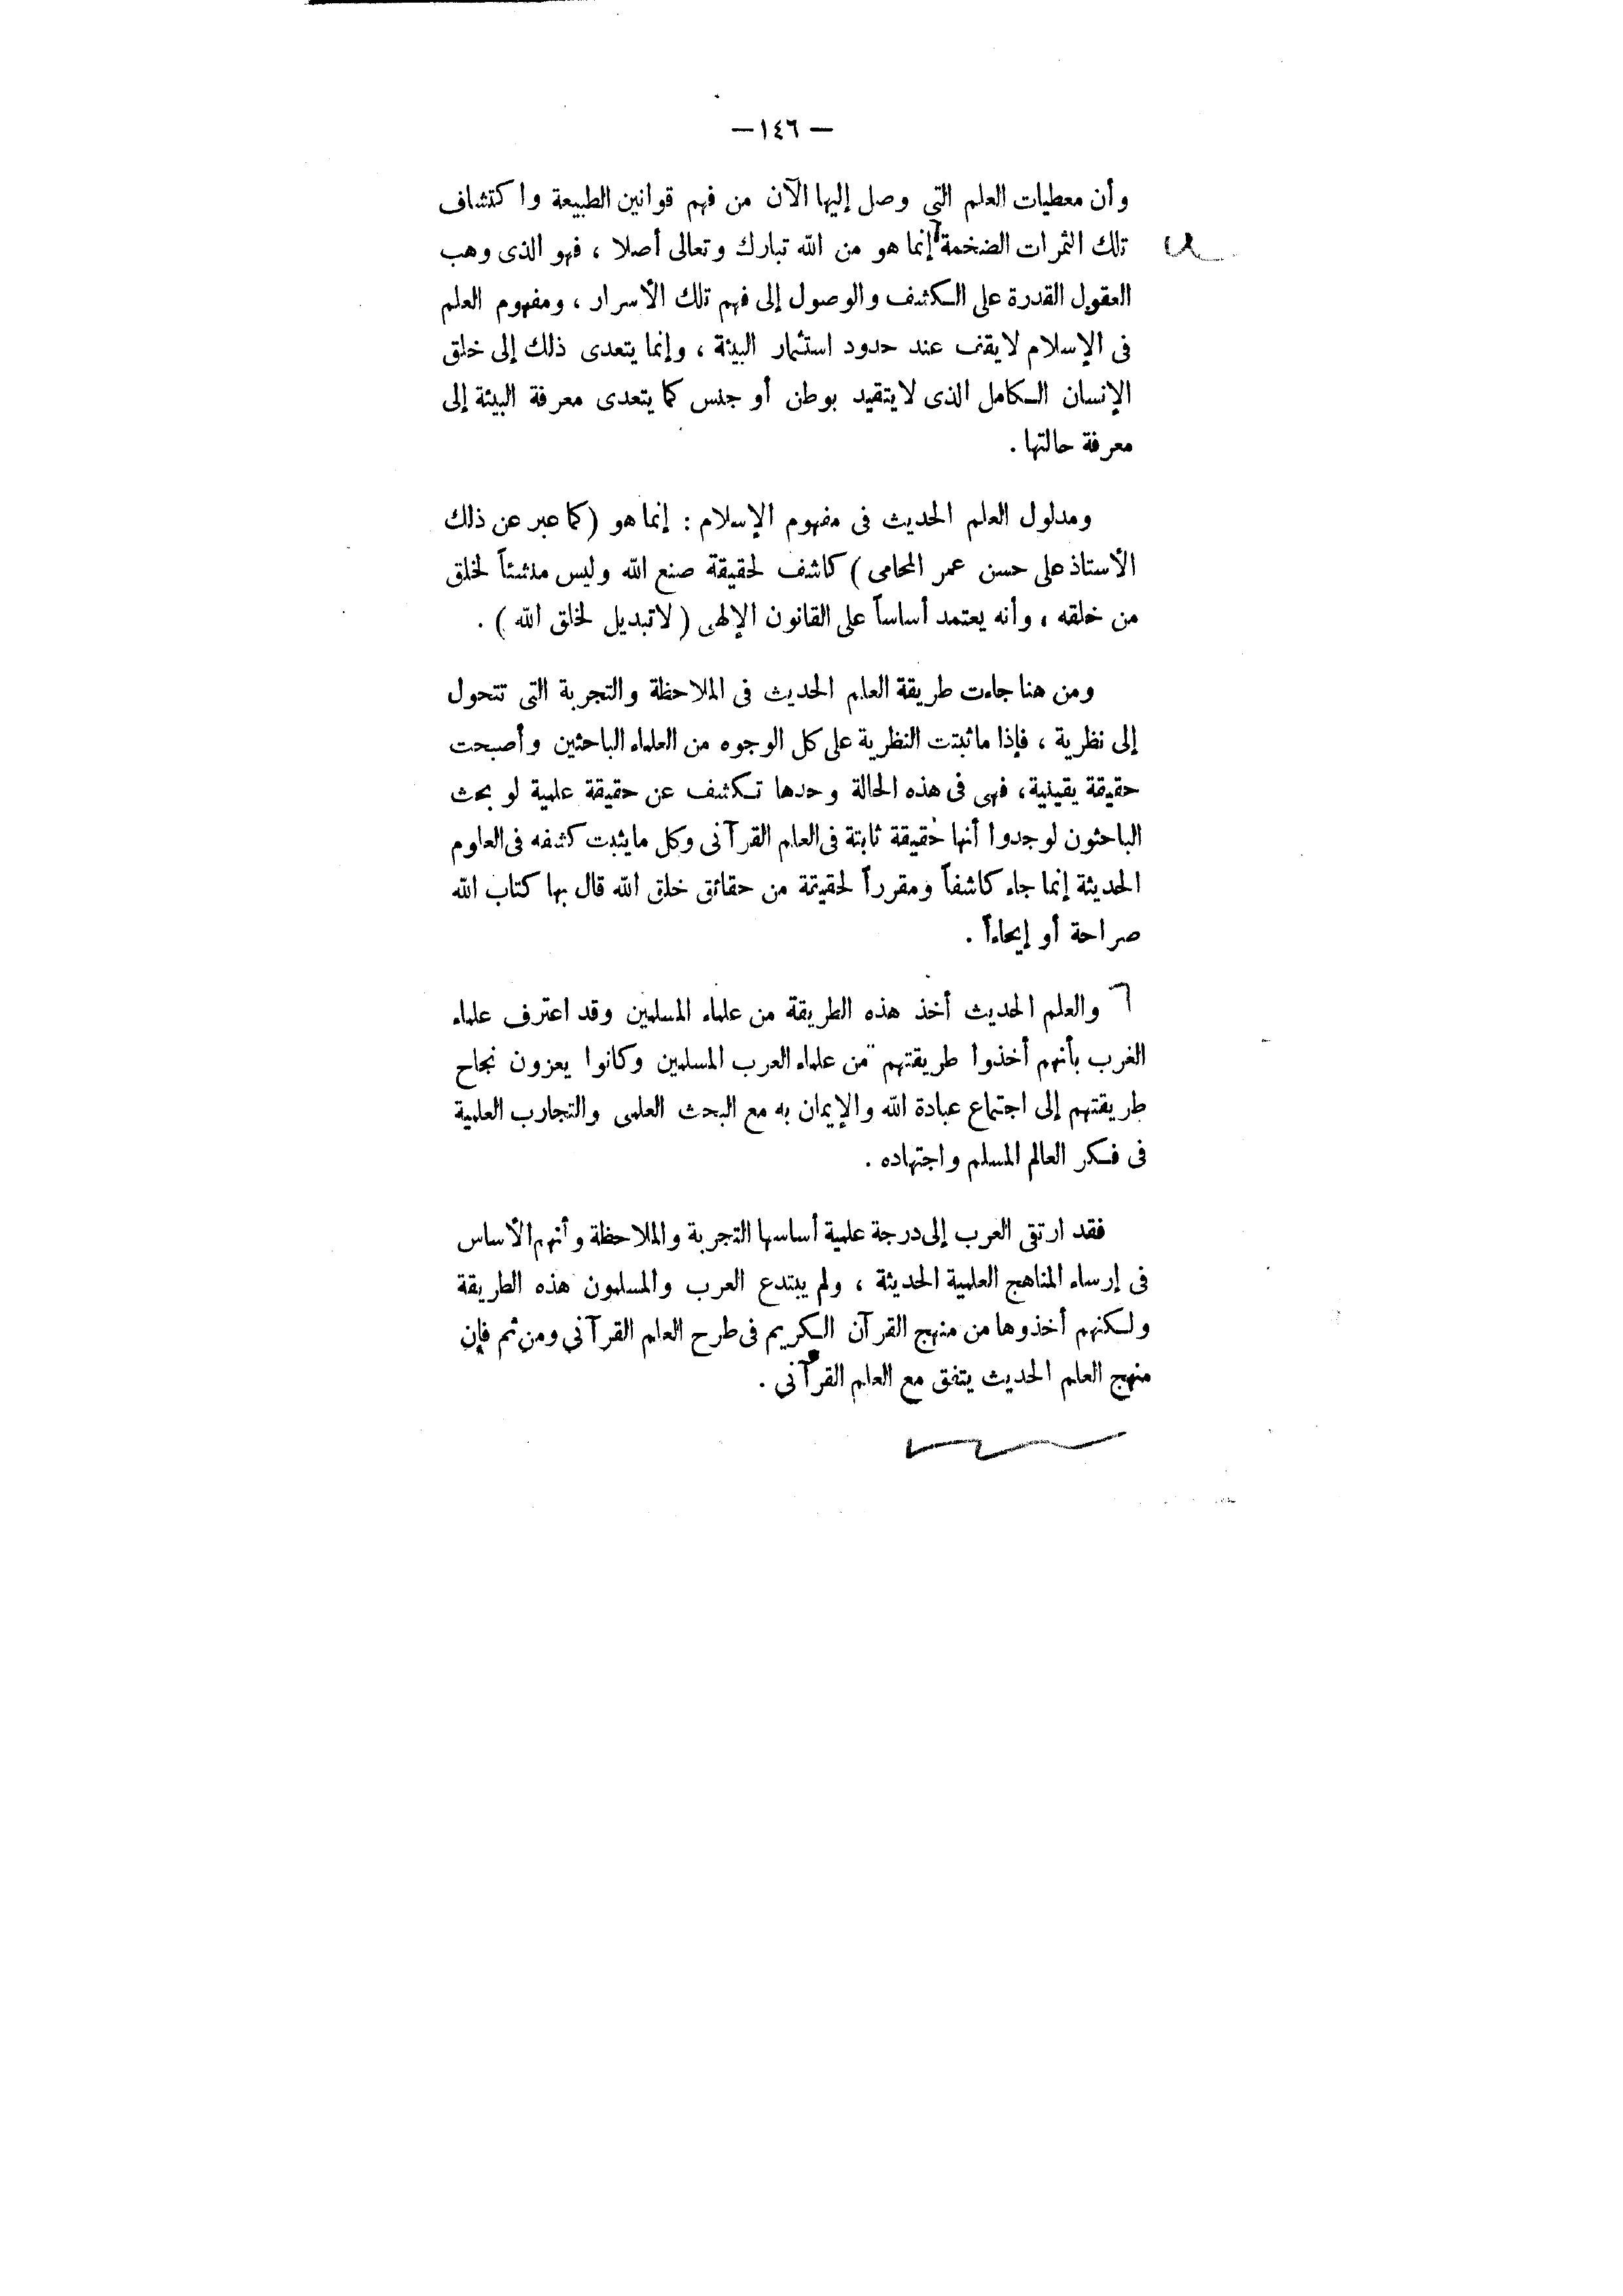 — ١٤٦ —
وأن معطيات العلم التي وصل إليها الآن من فهم قوانين الطبيعة واكتشاف
تلك الثمرات الضخمة إنما هو من الله تبارك وتعالى أصلا ، فهو الذى وهب
العقول القدرة على الكشف والوصول إلى فهم تلك الأسرار ، ومفهوم العلم
فى الإسلام لا يقف عند حدود استثمار البيئة ، وإنما يتعدى ذلك إلى خلق
الإنسان الكامل الذى لا يتقيد بوطن أو جنس كما يتعدى معرفة البيئة إلى
معرفة حالتها .
ومدلول العلم الحديث فى مفهوم الإسلام : إنما هو (كما عبر عن ذلك
الأستاذ على حسن عمر المحامى) كاشف لحقيقة صنع الله وليس منشئاً لخلق
من خلقه ، وأنه يعتمد أساساً على القانون الإلهى ( لا تبديل لخلق الله ) .
ومن هنا جاءت طريقة العلم الحديث فى الملاحظة والتجربة التى تتحول
إلى نظرية ، فإذا ما ثبتت النظرية على كل الوجوه من العلماء الباحثين وأصبحت
حقيقة يقينية ، فهى فى هذه الحالة وحدها تكشف عن حقيقة علمية لو بحث
الباحثون لوجدوا أنها حقيقة ثابتة فى العلم القرآنى وكل ما يثبت كشفه فى العلوم
الحديثة إنما جاء كاشفاً ومقرراً لحقيقة من حقائق خلق الله قال بها كتاب الله
صراحة أو إيحاءاً .
والعلم الحديث أخذ هذه الطريقة من علماء المسلمين وقد اعترف علماء
الغرب بأنهم أخذوا طريقتهم من علماء العرب المسلمين وكانوا يعزون نجاح
طريقتهم إلى اجتماع عبادة الله والإيمان به مع البحث العلمى والتجارب العلمية
فى فكر العالم المسلم واجتهاده .
فقد ارتقى العرب إلى درجة علمية أساسها التجربة والملاحظة وأنهم الأساس
فى إرساء المناهج العلمية الحديثة ، ولم يبتدع العرب والمسلمون هذه الطريقة
ولكنهم أخذوها من منهج القرآن الكريم فى طرح العلم القرآنى ومن ثم فإن
منهج العلم الحديث يتفق مع العلم القرآنى .